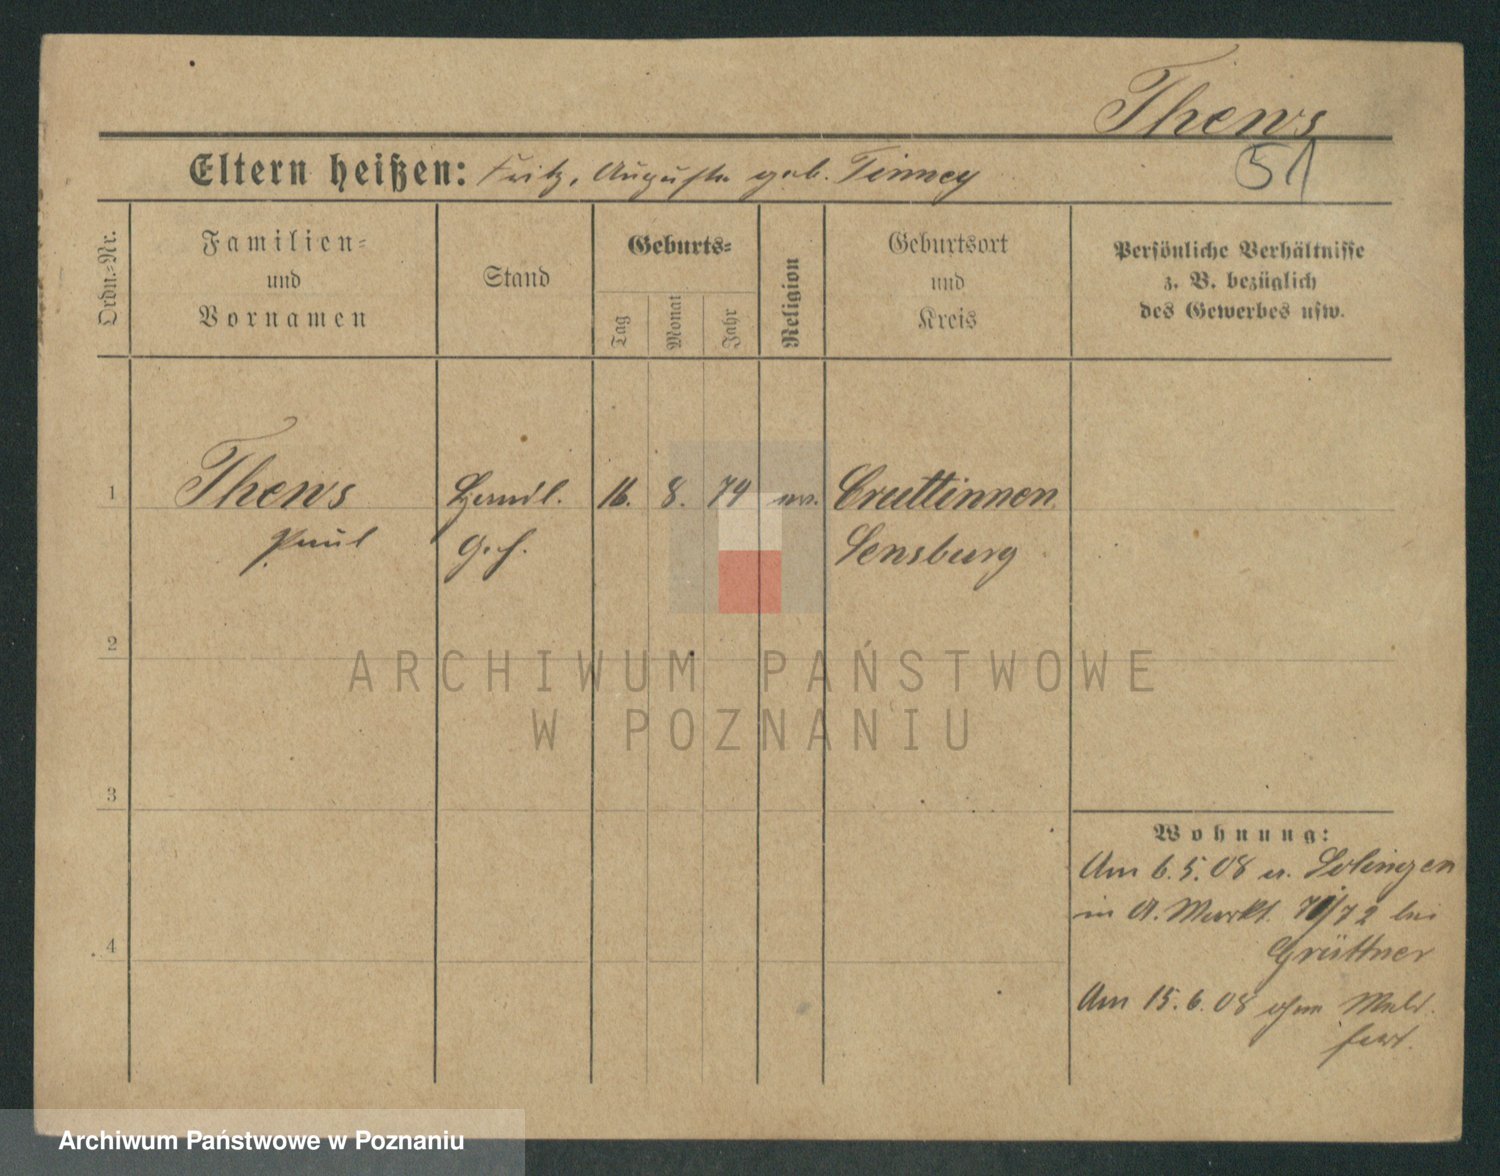 Thews
51
Eltern heißen: Fritz, Auguste geb. Tinney
Ordn.=Nr.
Familien=
und
Vornamen
Stand
Geburts=
Tag
Monat
Jahr
Religion
Geburtsort
und
Kreis
Persönliche Verhältnisse
z. B. bezüglich
des Gewerbes usw.
1
Thews
Paul
Handl.
Geh.
16. 8. 74
Cruttinnen
Sensburg
2
3
4
Wohnung:
Am 6.5.08 v. Solingen
in A. Markt. 71/72 bei
Grüttner
Am 15.6.08 ohne Meld.
fort.
ARCHIWUM PAŃSTWOWE
W POZNANIU
Archiwum Państwowe w Poznaniu